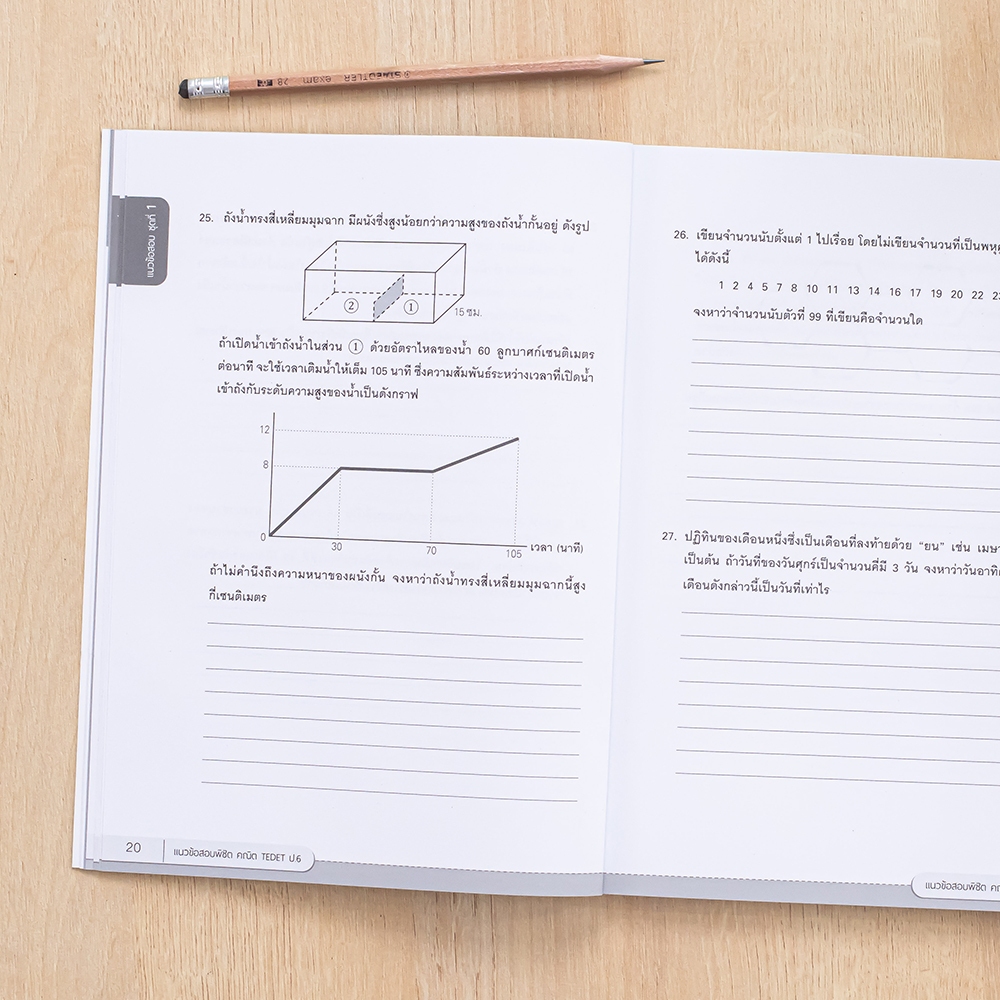 STAEDTLER exam 2B
แนวข้อสอบ ชุดที่ 1
25. ถังน้ำทรงสี่เหลี่ยมมุมฉาก มีผนังซึ่งสูงน้อยกว่าความสูงของถังน้ำกั้นอยู่ ดังรูป
② ① 15 ซม.
ถ้าเปิดน้ำเข้าถังน้ำในส่วน ① ด้วยอัตราไหลของน้ำ 60 ลูกบาศก์เซนติเมตร
ต่อนาที จะใช้เวลาเติมน้ำให้เต็ม 105 นาที ซึ่งความสัมพันธ์ระหว่างเวลาที่เปิดน้ำ
เข้าถังกับระดับความสูงของน้ำเป็นดังกราฟ
12
8
0
30 70 105 เวลา (นาที)
ถ้าไม่คำนึงถึงความหนาของผนังกั้น จงหาว่าถังน้ำทรงสี่เหลี่ยมมุมฉากนี้สูง
กี่เซนติเมตร
20 แนวข้อสอบพิชิต คณิต TEDET ป.6
26. เขียนจำนวนนับตั้งแต่ 1 ไปเรื่อย โดยไม่เขียนจำนวนที่เป็น
ได้ดังนี้
1 2 4 5 7 8 10 11 13 14 16 17 19 20 22
จงหาว่าจำนวนนับตัวที่ 99 ที่เขียนคือจำนวนใด
27. ปฏิทินของเดือนหนึ่งซึ่งเป็นเดือนที่ลงท้ายด้วย "ยน" เช่น
เป็นต้น ถ้าวันที่ของวันศุกร์เป็นจำนวนคี่มี 3 วัน จงหาว่า
เดือนดังกล่าวนี้เป็นวันที่เท่าไร
แนวข้อสอบพิชิต